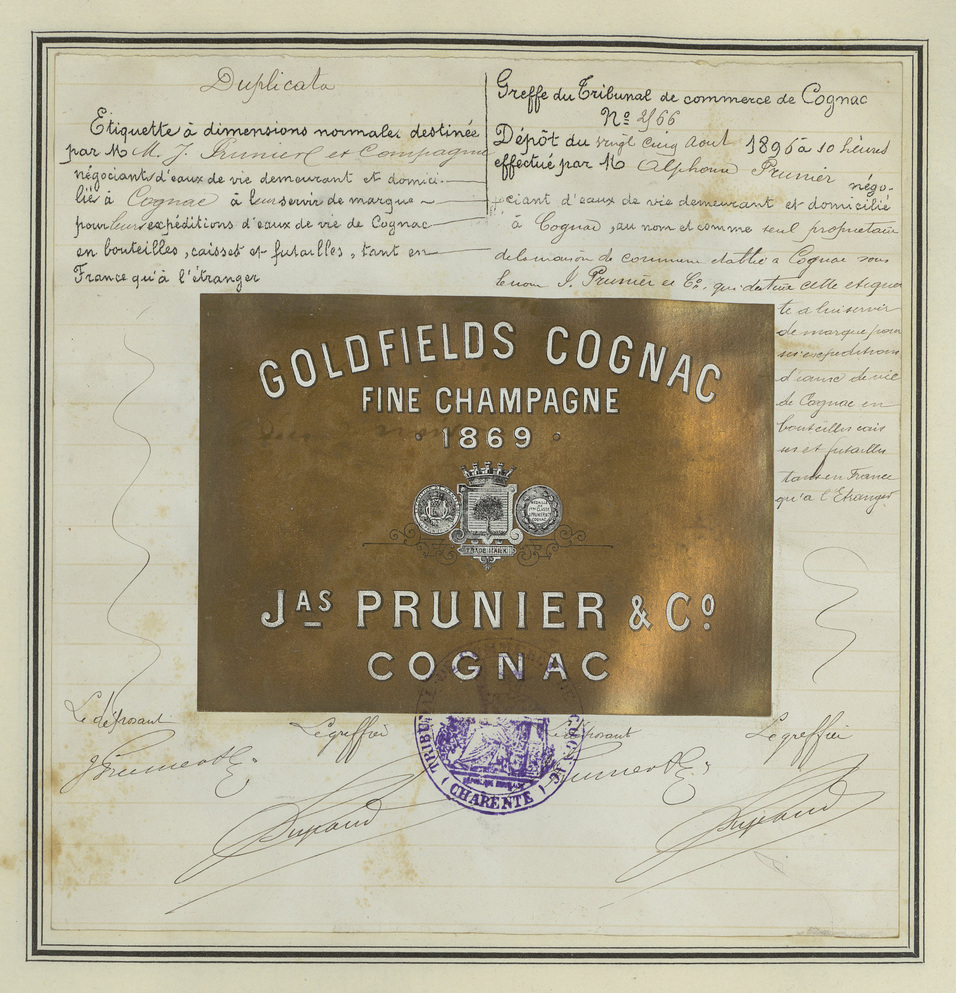 Duplicata
Etiquette à dimensions normales destinée
par M M. J. Prunier et Compagnie
négociants d'eaux de vie demeurant et domici-
liés à Cognac à leur servir de marque
pour leurs expéditions d'eaux de vie de Cognac
en bouteilles, caisses et futailles, tant en
France qu'à l'étranger
Greffe du Tribunal de commerce de Cognac
Nº 2166
Dépôt du vingt cinq Aout 1896 à 10 heures
effectué par M Alphonse Prunier négo-
ciant d'eaux de vie demeurant et domicilié
à Cognac, au nom et comme seul propriétaire
de la maison de commerce établie à Cognac sous
le nom J. Prunier et Cº, qui destine cette etiquet
te a lui servir
de marque pour
ses expeditions
d'eaux de vie
de Cognac en
bouteilles cais
ses et futailles
tant en France
qu'a l'Etranger
GOLDFIELDS COGNAC
FINE CHAMPAGNE
1869
TRADE MARK
JAS PRUNIER & Cº
COGNAC
Le déposant
Le greffier
Le déposant
Le greffier
TRIBUNAL
CHARENTE